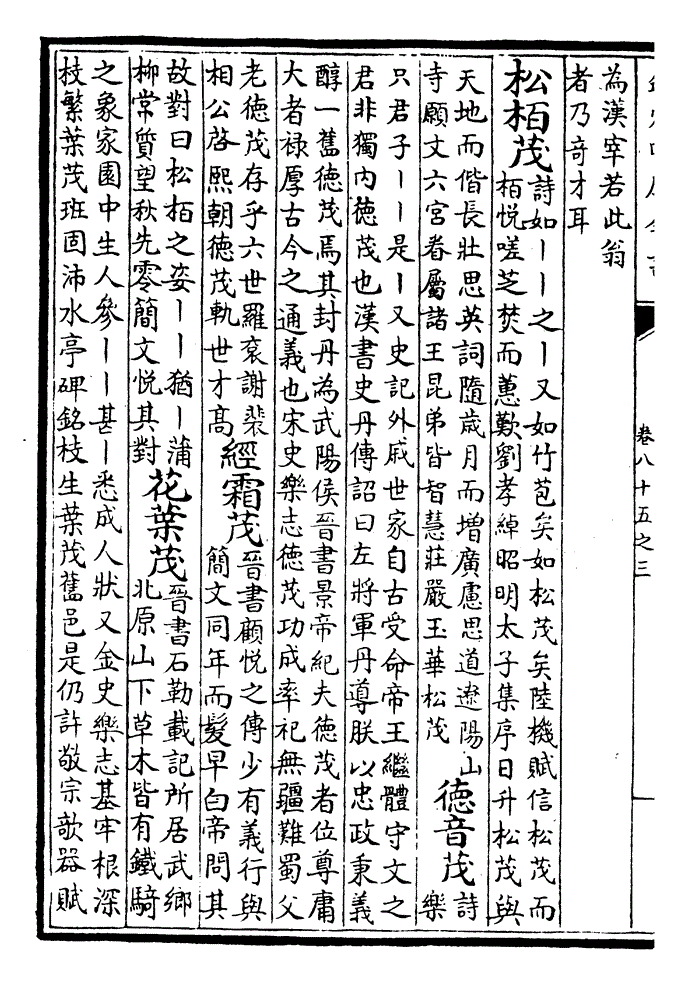 卷八十五之三
為漢宰若此翁
者乃奇才耳
松栢茂
詩如丨丨之丨又如竹苞矣如松茂矣陸機賦信松茂而
栢悦嗟芝焚而蕙歎劉孝綽昭明太子集序日升松茂與
天地而偕長壯思英詞隨歲月而增廣慮思道遼陽山
寺願文六宮眷屬諸王昆弟皆智慧莊嚴玉華松茂
德音茂
詩
樂
只君子丨丨是丨又史記外戚世家自古受命帝王繼體守文之
君非獨内徳茂也漢書史丹傳詔曰左將軍丹導朕以忠政秉義
醇一舊徳茂焉其封丹為武陽侯晉書景帝紀夫徳茂者位尊庸
大者禄厚古今之通義也宋史樂志徳茂功成率祀無疆難蜀父
老徳茂存乎六世羅衮謝裴
相公啓熙朝徳茂軌世才高
經霜茂
晉書顧悦之傳少有義行與
簡文同年而髮早白帝問其
故對曰松栢之姿丨丨猶丨蒲
柳常質望秋先零簡文悦其對
花葉茂
晉書石勒載記所居武鄉
北原山下草木皆有鐵騎
之象家園中生人參丨丨甚丨悉成人狀又金史樂志基牢根深
枝繁葉茂班固沛水亭碑銘枝生葉茂舊邑是仍許敬宗欹器賦